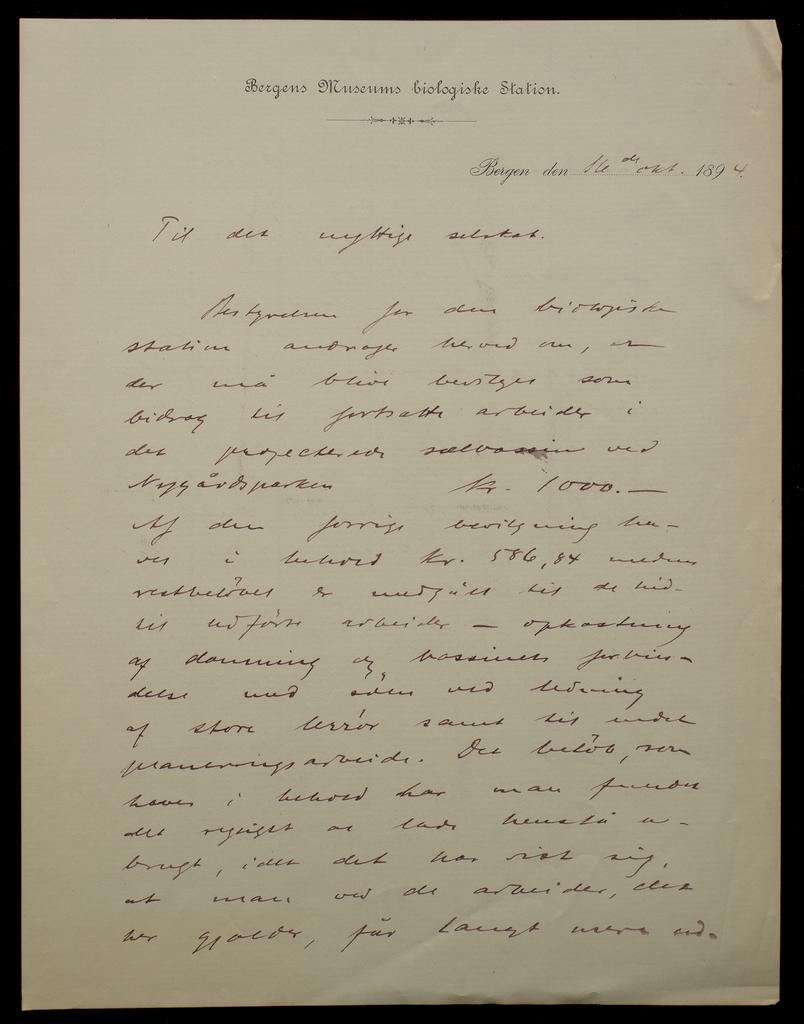 Bergens Museums biologiske Station.
Bergen den 16de okt. 1894.
Til det nyttige selskab.
Bestyrelsen for den biologiske
station andrager herved om, at
der må blive bevilget som
bidrag til fortsatte arbeider i
det projecterede sælbassin ved
Nygårdsparken kr. 1000.—
Af den forrige bevilgning ha-
ves i behold kr. 586,84 medens
restbeløbet er medgået til de hid-
til udførte arbeider — opkastning
af dæmning og bassinets forbin-
delse med søen ved ledning
af store lerrør samt til endel
planeringsarbeide. Det beløb, som
haves i behold har man fundet
det rigtigst at lade henstå u-
brugt, idet det har vist sig,
at man ved de arbeider, det
her gjælder, får langt mere ud-